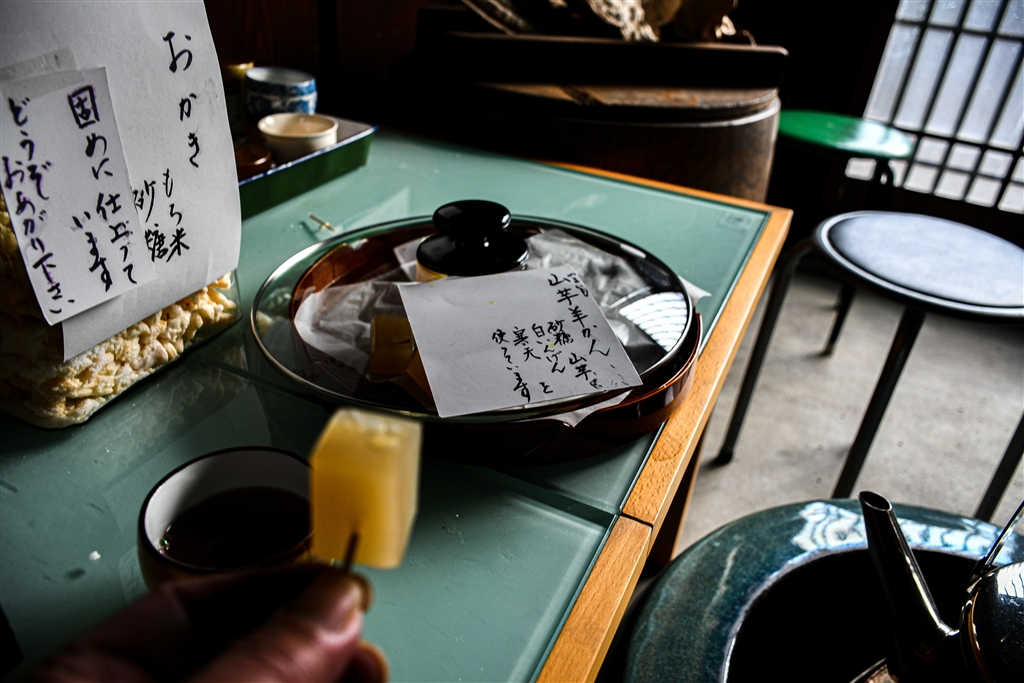 おかき
もち米
砂糖
固めに
仕上げて
います
どうぞ
おあがり下さい
山芋羊かん
山芋
砂糖
白いんげんと
寒天
使っています